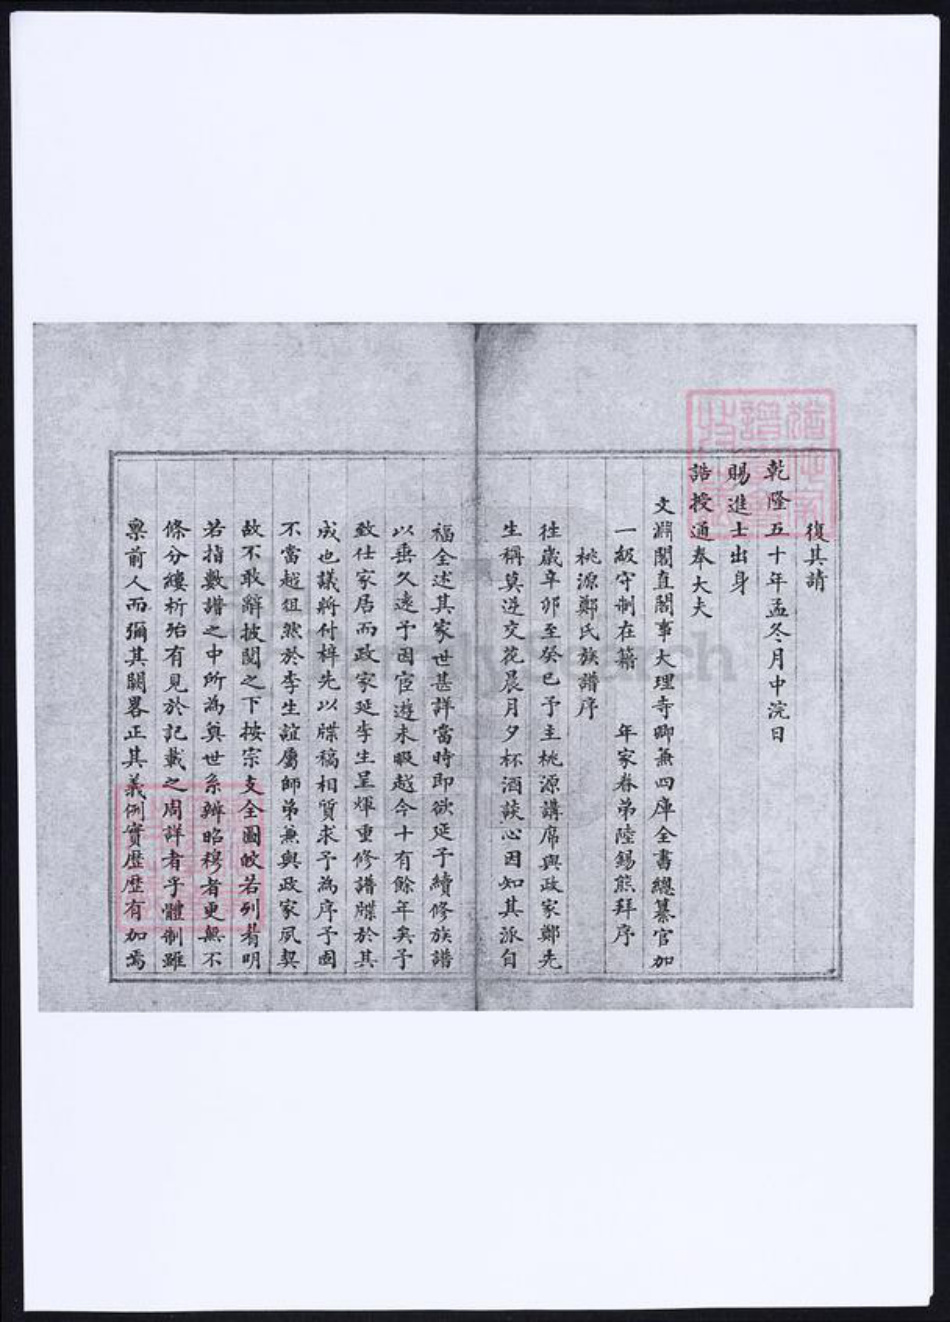 復其請
乾隆五十年孟冬月中浣日
賜進士出身
誥授通奉大夫
文淵閣直閣事大理寺卿兼四庫全書總纂官加
一級守制在籍 年家眷弟陸錫熊拜序
桃源鄭氏族譜序
往歲辛卯至癸巳予主桃源講席與政家鄭先
生稱莫逆交花晨月夕杯酒談心因知其派自
福全述其家世甚詳當時即欲延予續修族譜
以垂久遠予因宦遊未暇越今十有餘年矣予
致仕家居而政家延李生呈煇重修譜牒於其
成也議將付梓先以牒稿相質求予為序予固
不當越俎然於李生誼屬師弟兼與政家夙契
故不敢辭披閱之下按宗支全圖皎若列眉明
若指數譜之中所為奠世系辨昭穆者更無不
條分縷析殆有見於記載之周詳者乎體制雖
稟前人而彌其闕畧正其義例實歷歷有加焉